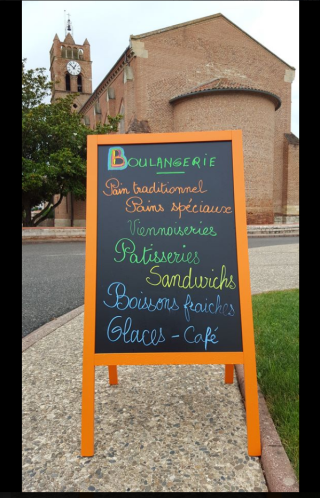 BOULANGERIE
Pain traditionnel
Pains spéciaux
Viennoiseries
Patisseries
Sandwichs
Boissons fraiches
Glaces - Café